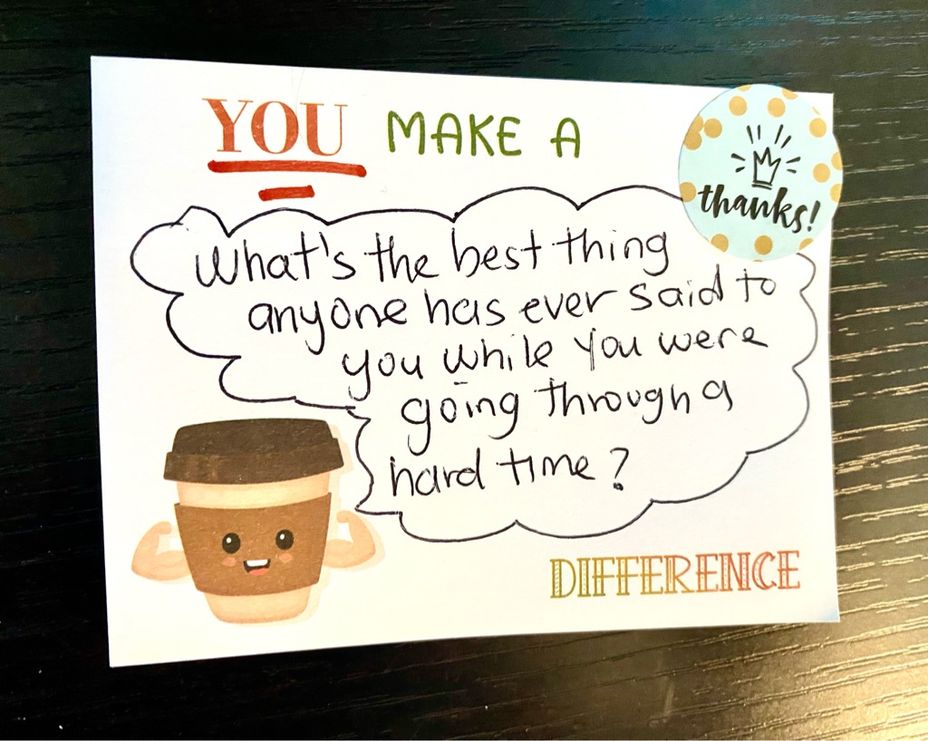 YOU MAKE A
thanks!
What's the best thing
anyone has ever said to
you while you were
going through a
hard time?
DIFFERENCE